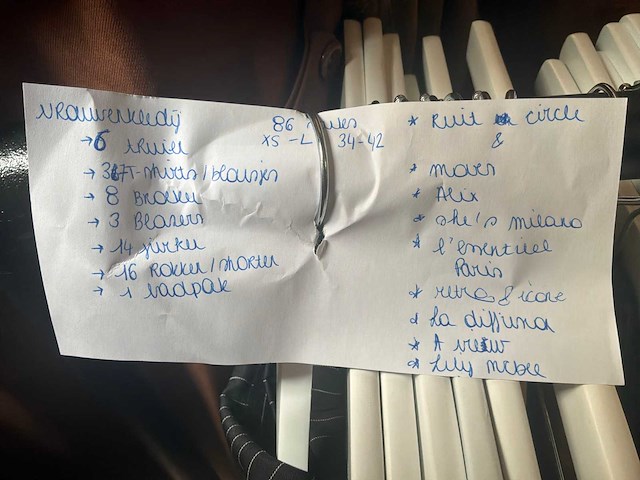 vrouwenkledij
→ 6 truien
→ T-shirts / blousjes
→ 8 Broeken
→ 3 Blazers
→ 14 jurken
→ 16 Rokken / shorten
→ 1 badpak
86
XS - L 34-42
* Ruit circle
&
* mars
* Alix
* she's milano
* l'essentiel
Paris
* retro & icone
* La diffusa
* A view
* Lily mcbee